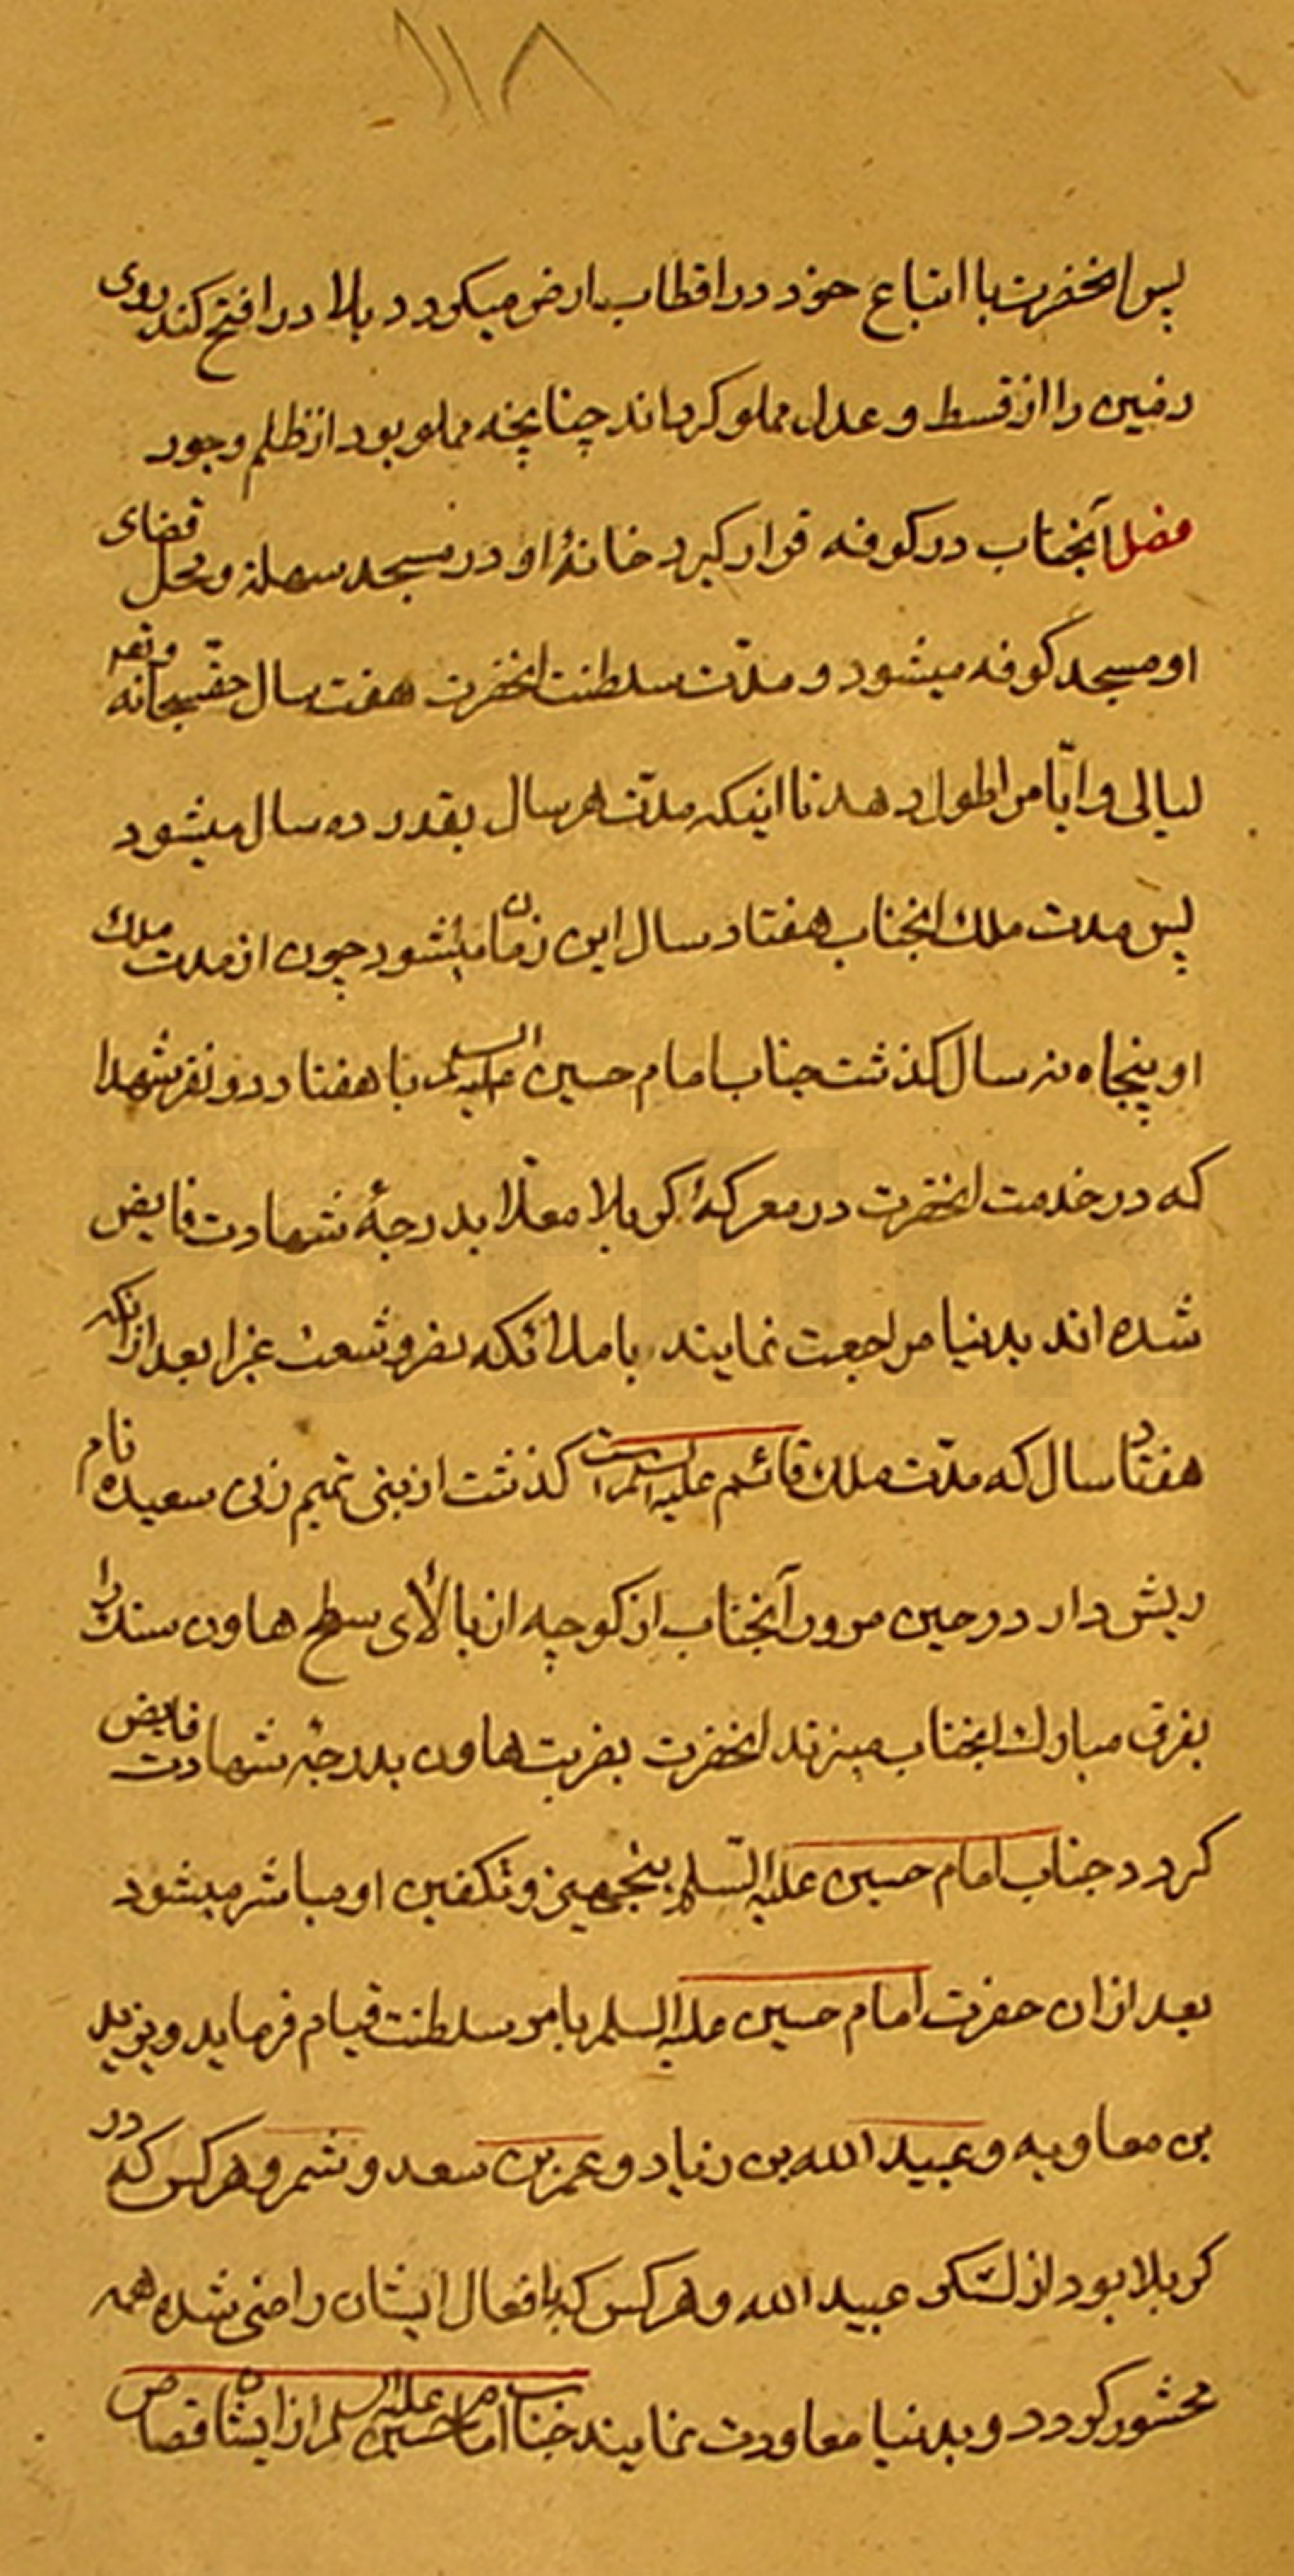 ۱۱۸
پس انحضرت با اتباع خود در اقطاب ارض میکردد بلا درا فتح کند روی
زمین را از قسط و عدل مملو کرداند چنانچه مملو بود از ظلم وجور
فصل آنجناب در کوفه قرار کیرد خانهٔ او در مسجد سهله ومحل قضای
او مسجد کوفه میشود و مدّت سلطنت انحضرت هفت سال حقسبحانه و تعه
لیالی و ایّام را طول دهد تا اینکه مدّت هر سال بقدر ده سال میشود
پس مدت ملك انجناب هفتاد سال این زمان میشود چون از مدت ملك
او پنجاه نه سال کذشت جناب امام حسین علیه السلم با هفتاد دو نفر شهدا
که در خدمت انحضرت در معرکهٔ کربلا معلّا بدرجهٔ شهادت فایض
شده اند بدنیا مراجعت نمایند با ملائکه نفر و شعث غرا بعد از انکه
هفتاد سال که مدّت ملك قائم علیه السلم است کذشت از بنی تمیم زنی سعیده نام
ریش دار در حین مرور آنجناب از کوچه از بالای سطح هاون سنك را
بفرق مبارك انجناب میزند انحضرت بضربت هاون بدرجهٔ شهادت فایض
کردد جناب امام حسین علیه السّلم بتجهیز و تکفین او مباشر میشود
بعد از ان حضرت امام حسین علیه السلم بامر سلطنت قیام فرماید و یزید
بن معاویه و عبید الله بن زیاد و عمر بن سعد و شمر و هر کس که در
کربلا بود از لشکر عبید الله و هر کس که بافعال ایشان راضی شده همه
محشور کردد و بدنیا معاودت نمایند جناب امام حسین علیه السلم از ایشان قصاص